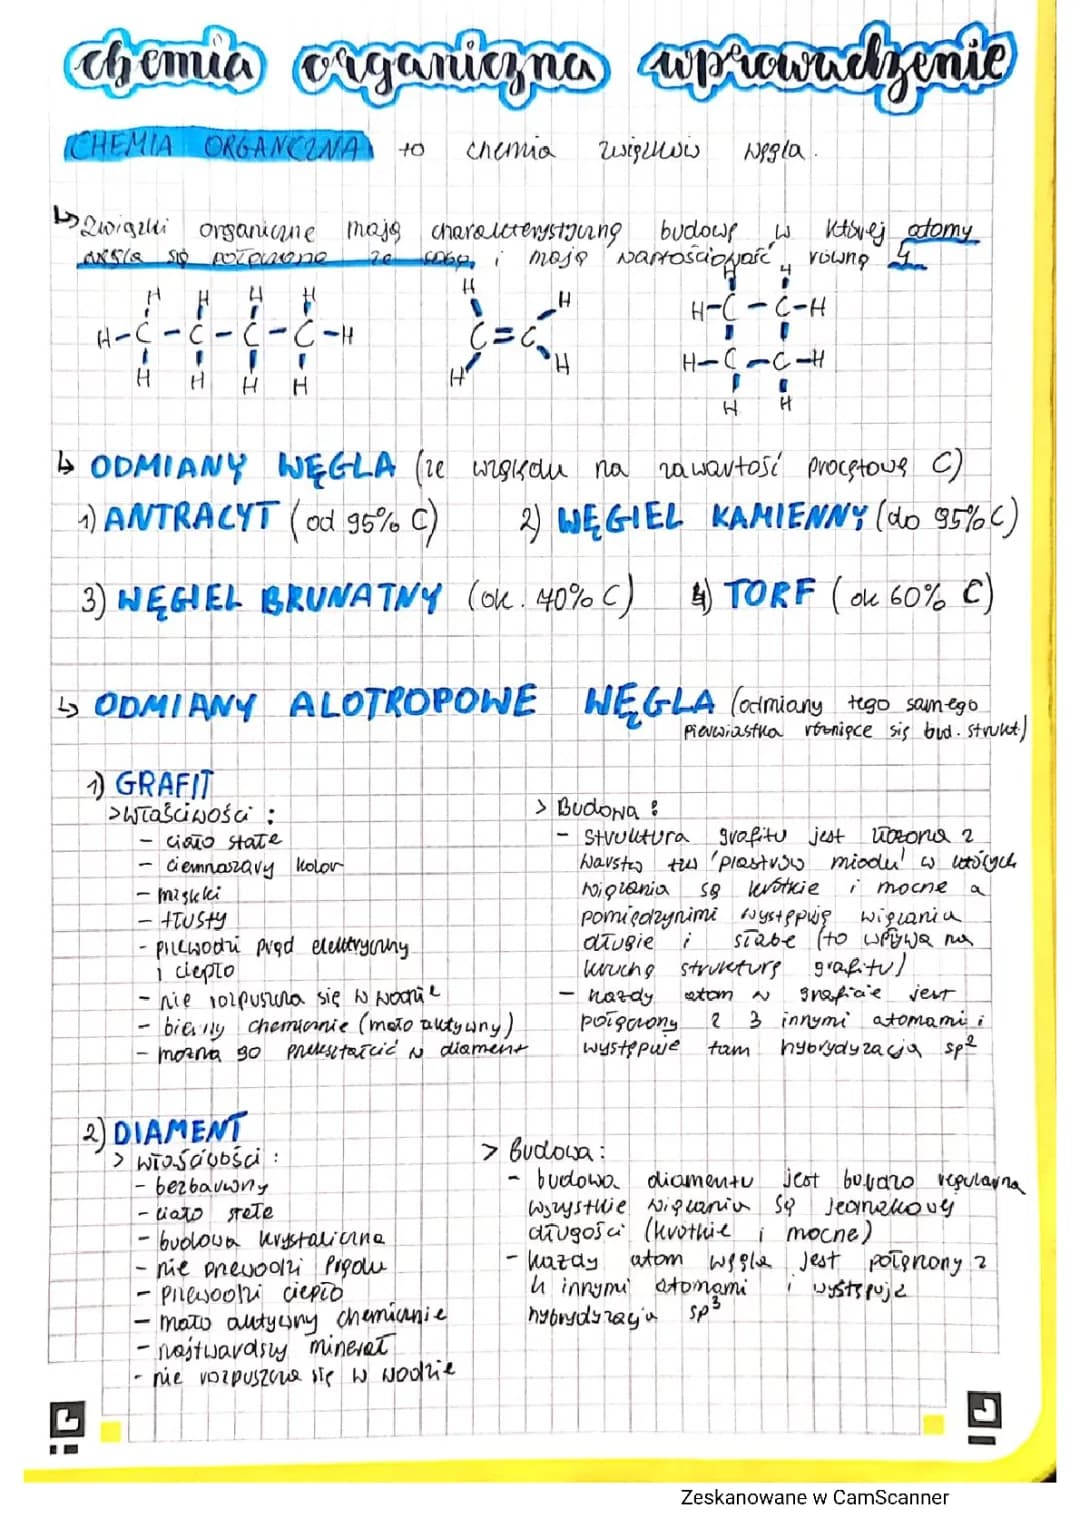 chemia organiczna wprowadzenie
CHEMIA ORGANICZNA to chemia związków węgla.
↳ Związki organiczne mają charakterystyczną budowę, w której atomy
węgla są połączone ze sobą, i mają wartościowość równą 4
H H H H H H H H
H-C-C-C-C-H C=C H-C-C-H
H H H H H H H-C-C-H
H H
↳ ODMIANY WĘGLA (ze względu na zawartość procętową C)
1) ANTRACYT (od 95% C) 2) WĘGIEL KAMIENNY (do 95% C)
3) WĘGIEL BRUNATNY (ok. 40% C) 4) TORF (ok 60% C)
↳ ODMIANY ALOTROPOWE WĘGLA (odmiany tego samego
pierwiastka różniące się bud. strukt)
1) GRAFIT
>właściwości:
- ciało stałe
- ciemnoszary kolor
- miękki
- tłusty
- przewodzi prąd elektryczny
i ciepło
- nie rozpuszcza się w wodzie
- bierny chemicznie (mało aktywny)
- można go przekształcić w diament
> Budowa:
- struktura grafitu jest złożona z
warstw tzw 'plastrów miodu' w których
wiązania są krótkie i mocne a
pomiędzynimi występują wiązania
długie i słabe (to wpływa na
kruchą strukturę grafitu)
- każdy atom w graficie jest
połączony z 3 innymi atomami i
występuje tam hybrydyzacja sp²
2) DIAMENT
> właściwości:
- bezbarwny
- ciało stałe
- budowa krystaliczna
- nie przewodzi prądu
- przewodzi ciepło
- mało aktywny chemicznie
- najtwardszy minerał
- nie rozpuszcza się w wodzie
> Budowa:
- budowa diamentu jest bardzo regularna
wszystkie wiązania są jednakowej
długości (krótkie i mocne)
- każdy atom węgla jest połączony z
4 innymi atomami i występuje
hybrydyzacja sp³
Zeskanowane w CamScanner